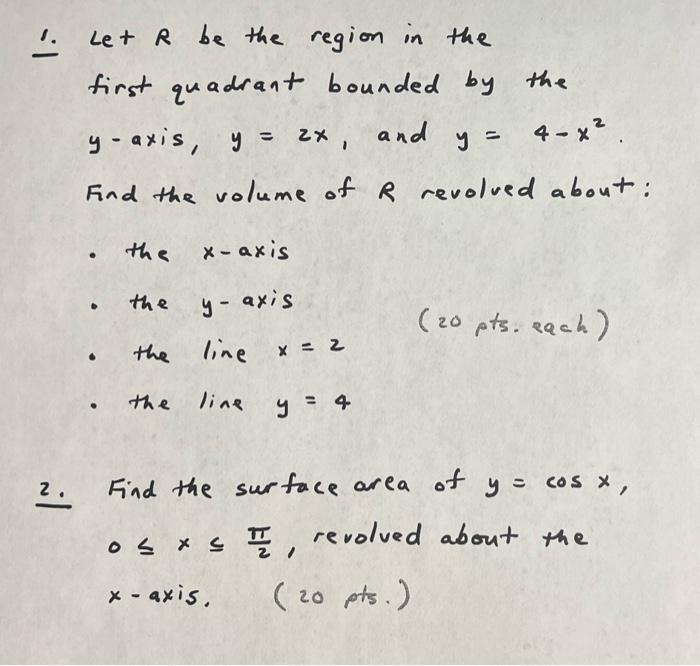 1. Let R be the region in the
first quadrant bounded by the
y-axis, y = 2x, and y = 4-x².
Find the volume of R revolved about:
• the x-axis
• the y-axis
(20 pts. each)
• the line x = 2
• the line y = 4
2. Find the surface area of y = cos x,
0 ≤ x ≤ π/2, revolved about the
x-axis. (20 pts.)